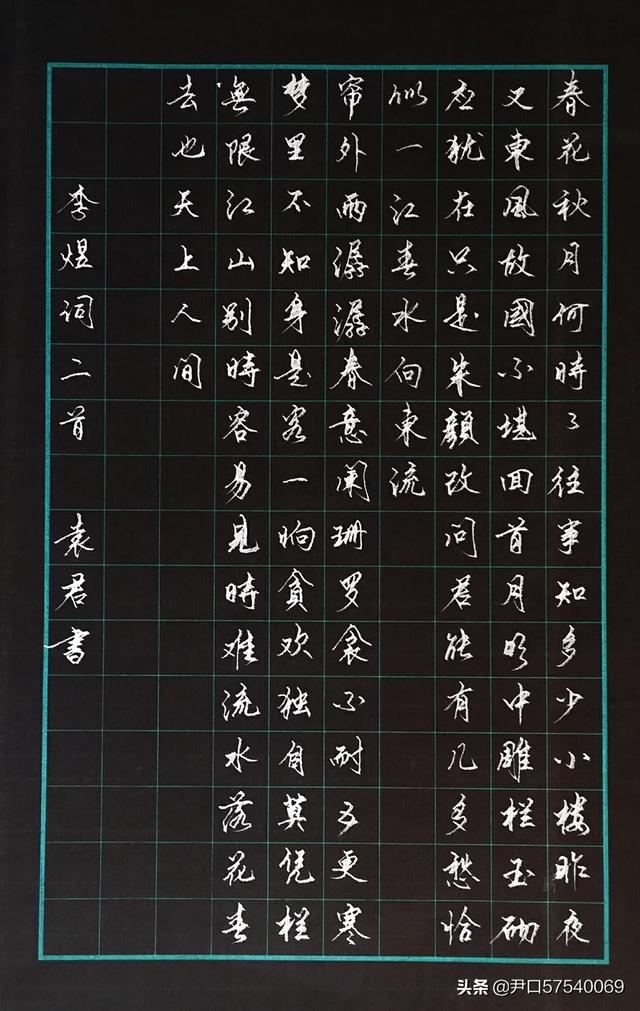 春花秋月何時了往事知多少小楼昨夜
又東風故國不堪回首月明中雕栏玉砌
应犹在只是朱顔改问君能有几多愁恰
似一江春水向東流
帘外雨潺潺春意阑珊罗衾不耐五更寒
梦里不知身是客一晌貪欢独自莫凭栏
無限江山别時容易見時难流水落花春
去也天上人间
李煜词二首 袁君书
头条@尹口57540069